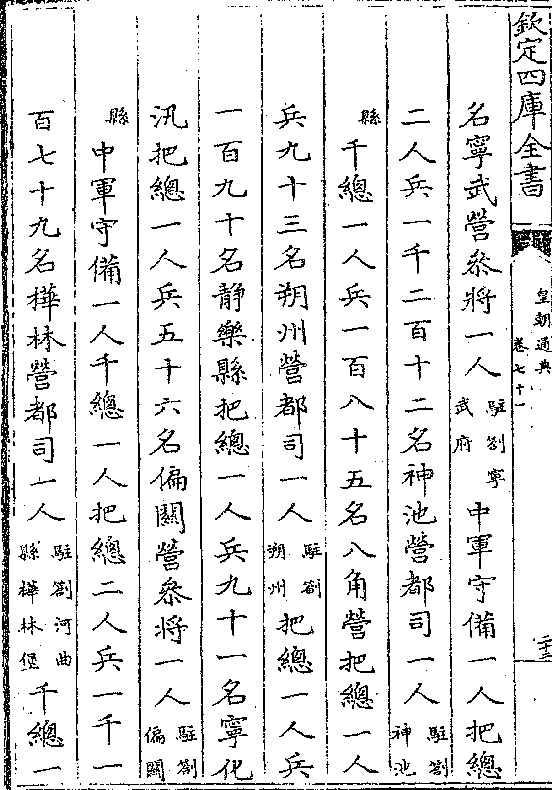 欽定四庫全書
皇朝通典
卷七十一
名寧武營叅將一人駐劄寧武府中軍守備一人把總
二人兵一千二百十二名神池營都司一人駐劄神池
縣千總一人兵一百八十五名八角營把總一人
兵九十三名朔州營都司一人駐劄朔州把總一人兵
一百九十名靜樂縣把總一人兵九十一名寧化
汛把總一人兵五十六名偏關營叅將一人駐劄偏關
縣中軍守備一人千總一人把總二人兵一千一
百七十九名樺林營都司一人駐劄河曲縣樺林堡千總一